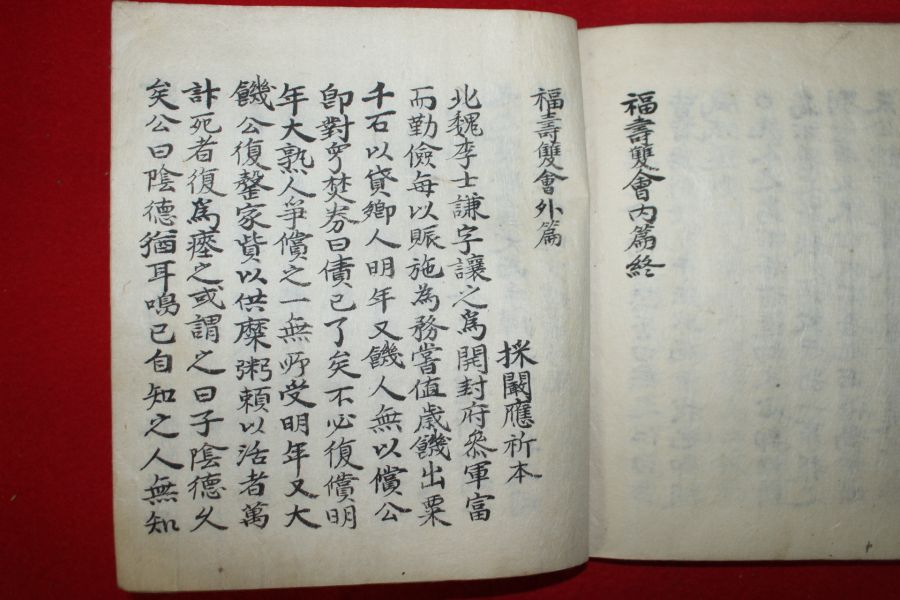 福壽雙會内篇終
福壽雙會外篇
採闞應祈本
北魏李士謙字讓之爲開封府叅軍富
而勤儉每以賑施為務嘗値歲饑出粟
千石以貸鄉人明年又饑人無以償公
卽對衆焚券曰債已了矣不必復償明
年大熟人爭償之一無所受明年又大
饑公復罄家貲以供糜粥賴以活者萬
計死者復爲瘞之或謂之曰子陰德大
矣公曰陰德猶耳鳴已自知之人無知